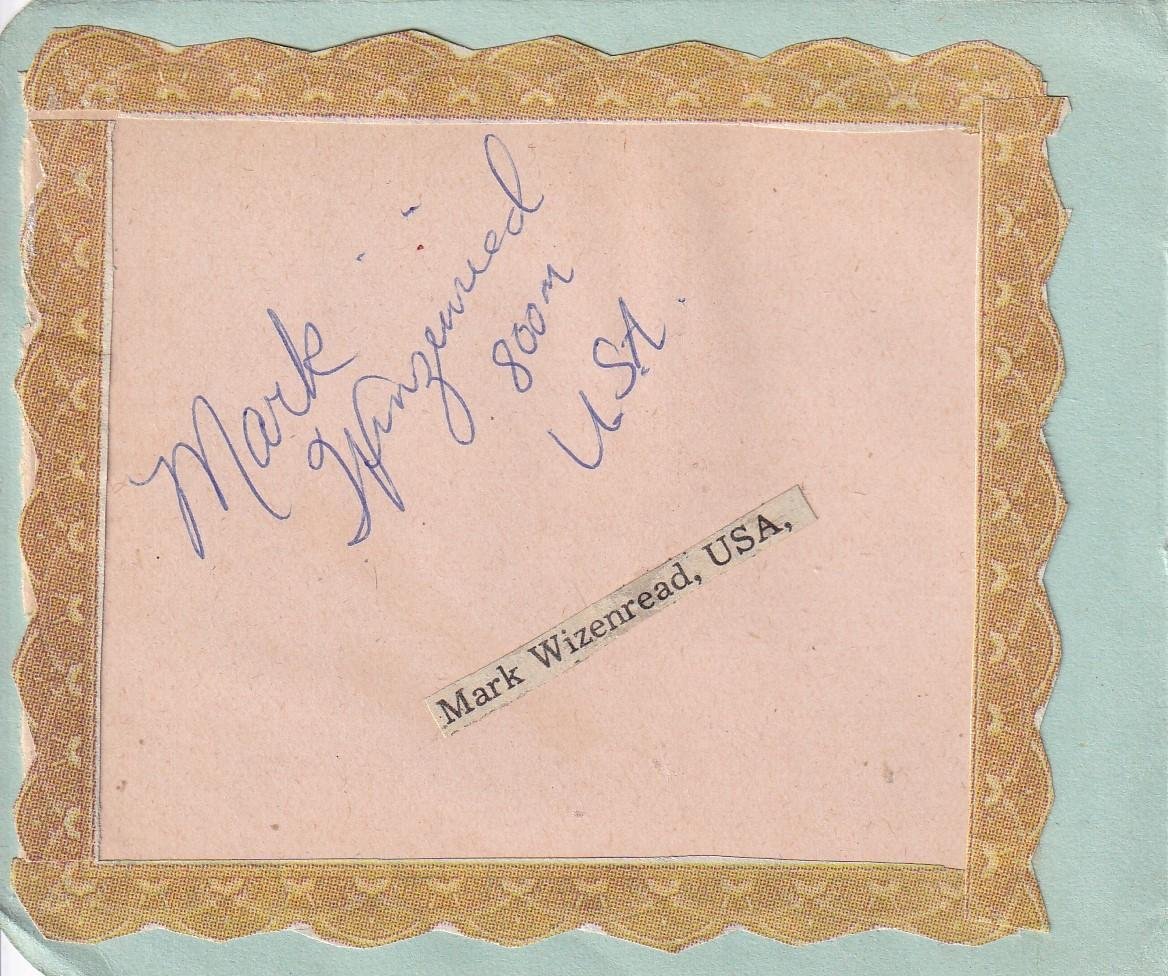 Mark
Winzenried
800m
USA.
Mark Wizenread, USA,